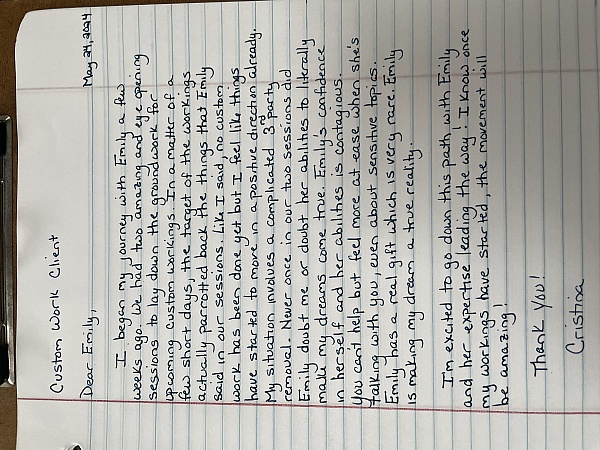 May 24, 2024
Custom Work Client
Dear Emily,
I began my journey with Emily a few
weeks ago. We had two amazing and eye opening
sessions to lay down the groundwork for
upcoming custom workings. In a matter of a
few short days, the target of the workings
actually parrotted back the things that Emily
said in our sessions. Like I said, no custom
work has been done yet but I feel like things
have started to move in a positive direction already.
My situation involves a complicated 3rd party
removal. Never once in our two sessions did
Emily doubt me or doubt her abilities to literally
make my dreams come true. Emily's confidence
in herself and her abilities is contagious.
You can't help but feel more at ease when she's
talking with you, even about sensitive topics.
Emily has a real gift which is very rare. Emily
is making my dream a true reality.
I'm excited to go down this path with Emily
and her expertise leading the way! I know once
my workings have started, the movement will
be amazing!
Thank you!
Cristina